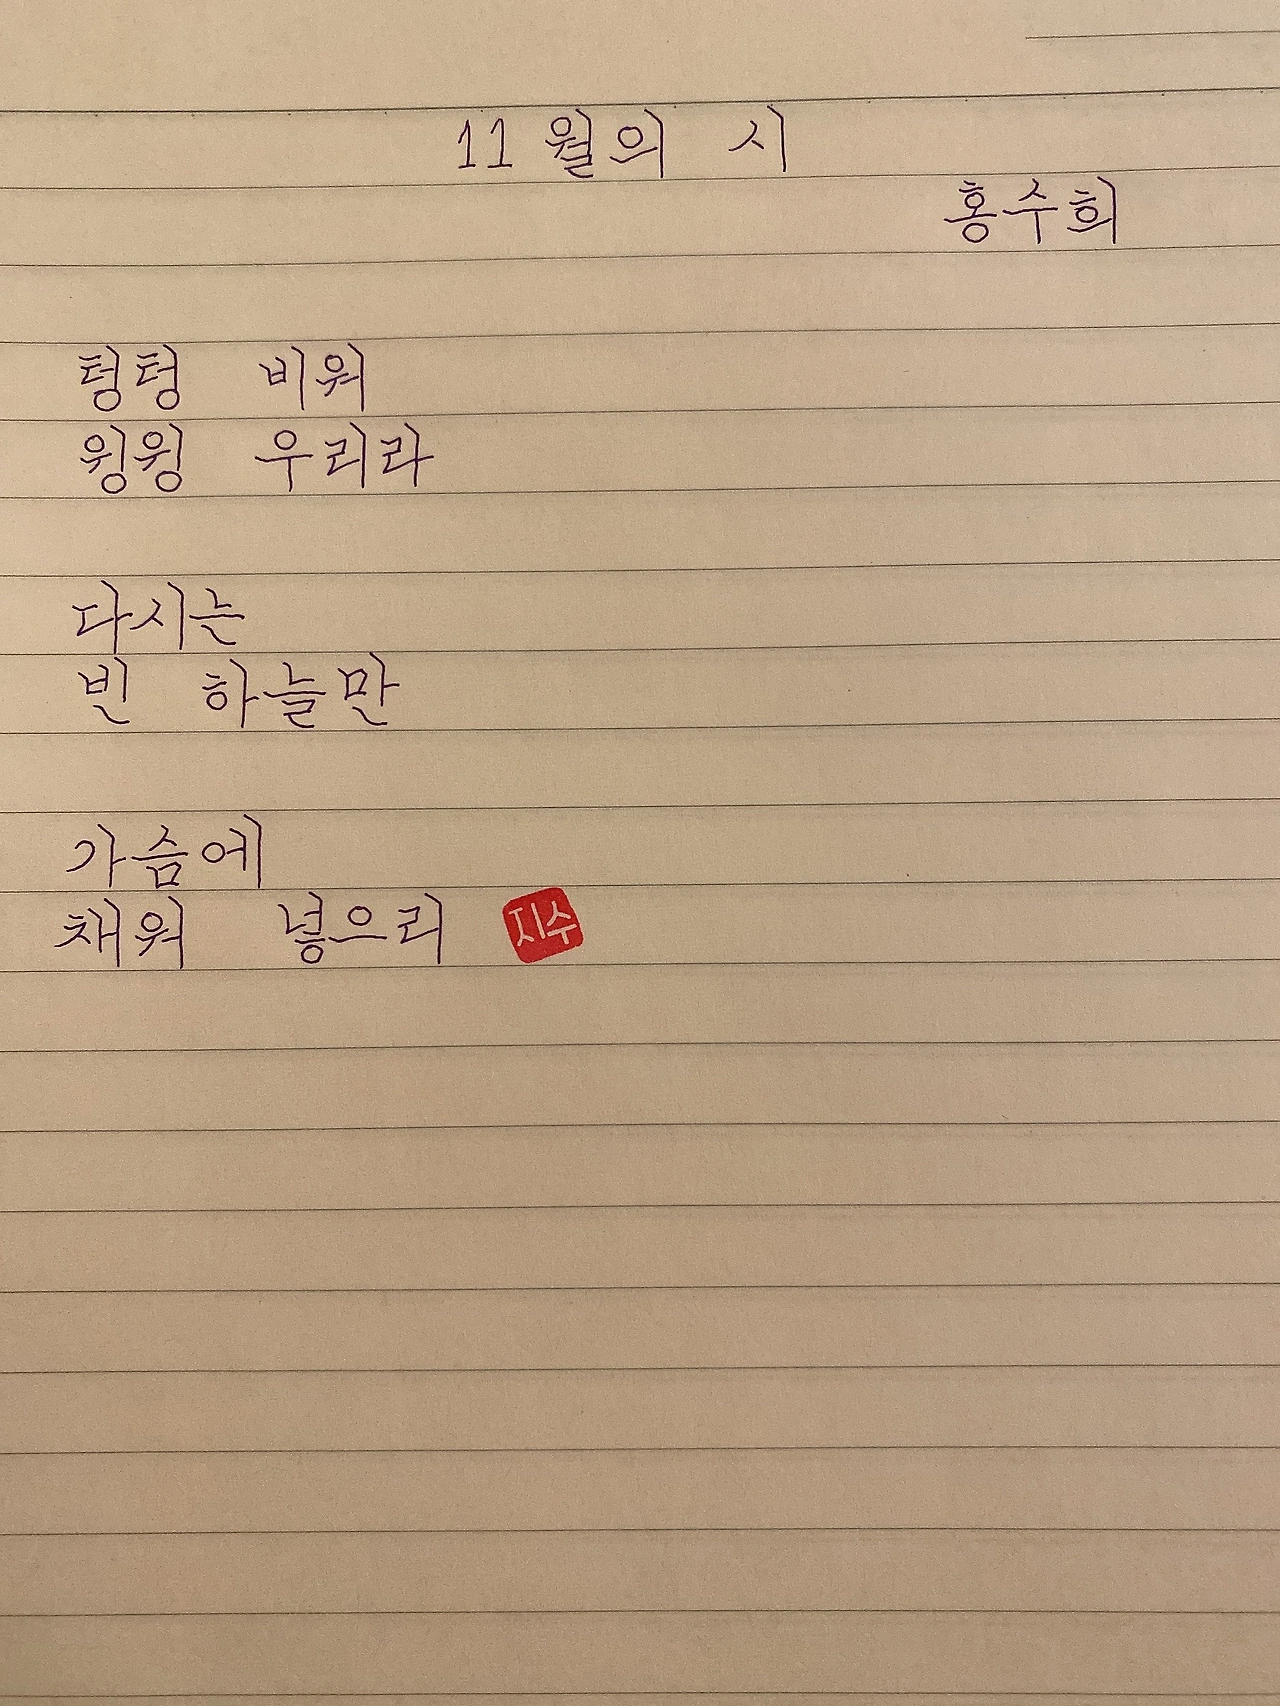 11월의 시
홍수희
텅텅 비워
윙윙 우리라
다시는
빈 하늘만
가슴에
채워 넣으리
지수